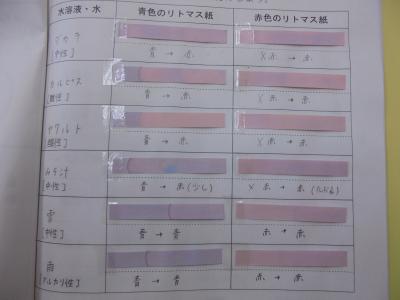 水溶液・水 青色のリトマス紙 赤色のリトマス紙
[中性] 青 → 赤 × 赤 → 赤
カルピス
[酸性] 青 → 赤 × 赤 → 赤
ヤクルト
[酸性] 青 → 赤 × 赤 → 赤
みそ汁
[中性] 青 → 赤(少し) × 赤 → 赤
雪
[中性] 青 → 青 赤 → 赤
雨
[アルカリ性] 青 → 青 赤 → 赤